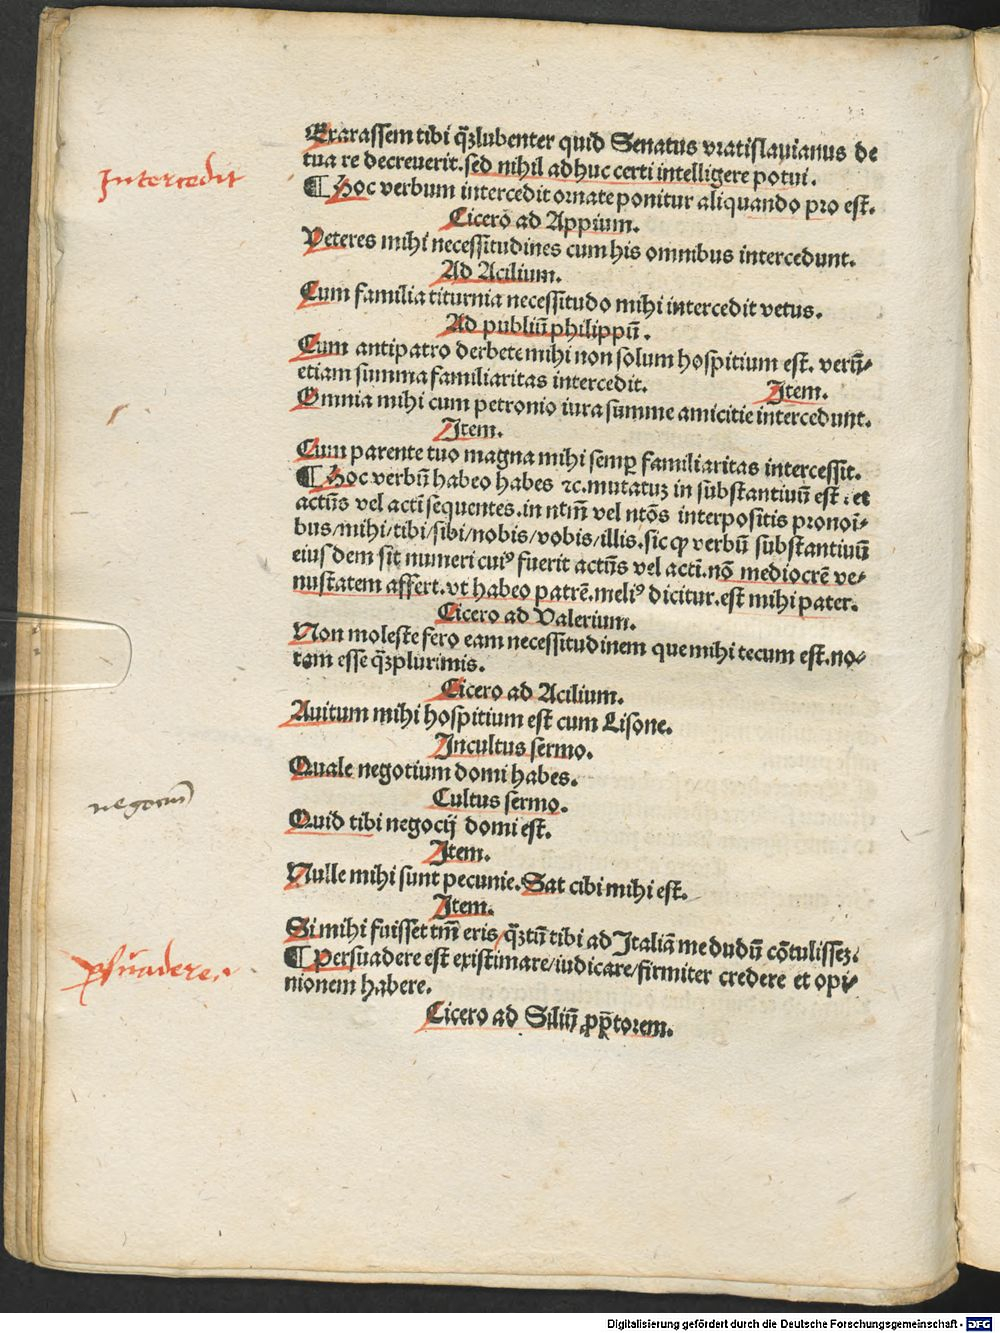 Exarassem tibi q̄ꝫlubenter quid Senatus vratislauianus de
tua re decreuerit. sed nihil adhuc certi intelligere potui.
Intercedit
¶ Hoc verbum intercedit ornate ponitur aliquando pro est.
Cicero ad Appium.
Veteres mihi necessitudines cum his omnibus intercedunt.
Ad Acilium.
Cum familia titurnia necessitudo mihi intercedit vetus.
Ad publiū philippū.
Cum antipatro derbete mihi non solum hospitium est. verū⸗
etiam summa familiaritas intercedit. Item.
Omnia mihi cum petronio iura summe amicitie intercedunt.
Item.
Cum parente tuo magna mihi semꝑ familiaritas intercessit.
¶ Hoc verbū habeo habes ꝛc. mutatuꝫ in substantiuū est: et
actūs vel acti sequentes. in ntm̄ vel ntōs interpositis pronoī⸗
bus/mihi/tibi/sibi/nobis/vobis/illis. sic ꝙ verbū substantiuū
eiusdem sit numeri cuiꝰ fuerit actūs vel acti. nō mediocrē ve⸗
nustatem affert. vt habeo patrē. meliꝰ dicitur. est mihi pater.
Cicero ad Valerium.
Non moleste fero eam necessitudinem que mihi tecum est. no⸗
tam esse q̄ꝫplurimis.
Cicero ad Acilium.
Auitum mihi hospitium est cum Lisone.
Incultus sermo.
Quale negotium domi habes.
Cultus sermo.
negocium
Quid tibi negocij domi est.
Item.
Nulle mihi sunt pecunie. Sat cibi mihi est.
Item.
Si mihi fuisset tm̄ eris/q̄ꝫtū tibi ad Italiā me dudū cōtulisseꝫ.
ꝑsuadere.
¶ Persuadere est existimare/iudicare/firmiter credere et opi⸗
nionem habere.
Cicero ad Siliū ꝓpͬtorem.
Digitalisierung gefördert durch die Deutsche Forschungsgemeinschaft - DFG